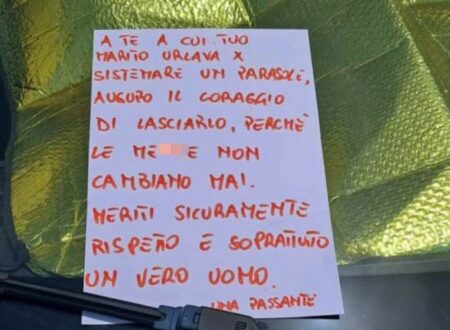 A TE A CUI TUO
MARITO URLAVA X
SISTEMARE UN PARASOLE,
AUGURO IL CORAGGIO
DI LASCIARLO, PERCHÈ
LE ME E NON
CAMBIANO MAI.
MERITI SICURAMENTE
RISPETTO E SOPRATTUTTO
UN VERO UOMO.
UNA PASSANTE